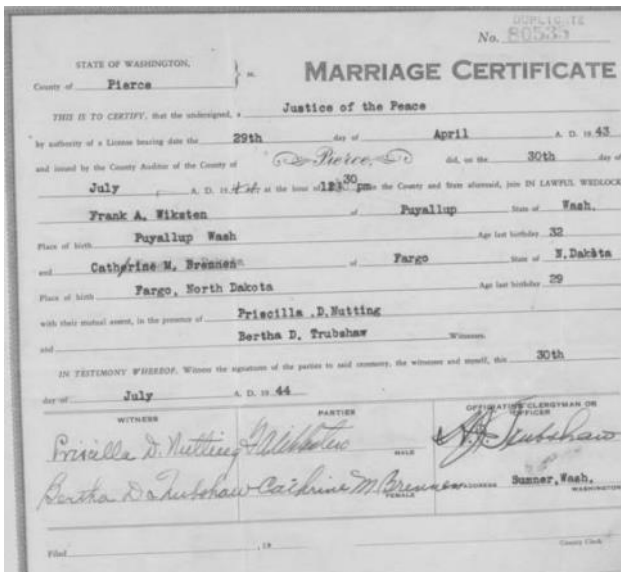 DUPLICATE
No. 80535
STATE OF WASHINGTON,
County of Pierce } ss.
MARRIAGE CERTIFICATE
THIS IS TO CERTIFY, that the undersigned, a Justice of the Peace
by authority of a License bearing date the 29th day of April A. D. 1943
and issued by the County Auditor of the County of Pierce, did, on the 30th day of
July A. D. 19 at the hour of 30 pm in the County and State aforesaid, join IN LAWFUL WEDLOCK
Frank A. Wiksten of Puyallup State of Wash.
Place of birth Puyallup Wash Age last birthday 32
and Catherine M. Brennen of Fargo State of N.Dakata
Place of birth Fargo, North Dakota Age last birthday 29
with their mutual assent, in the presence of Priscilla .D.Nutting
and Bertha D. Trubshaw Witnesses.
IN TESTIMONY WHEREOF, Witness the signatures of the parties to said ceremony, the witnesses and myself, this 30th
day of July A. D. 1944
WITNESS PARTIES OFFICIATING CLERGYMAN OR OFFICER
Priscilla D. Nutting F A Wiksten MALE Trubshaw
Bertha D Trubshaw Cathrine M. Brennen FEMALE ADDRESS Sumner, Wash. WASHINGTON
Filed , 19 County Clerk